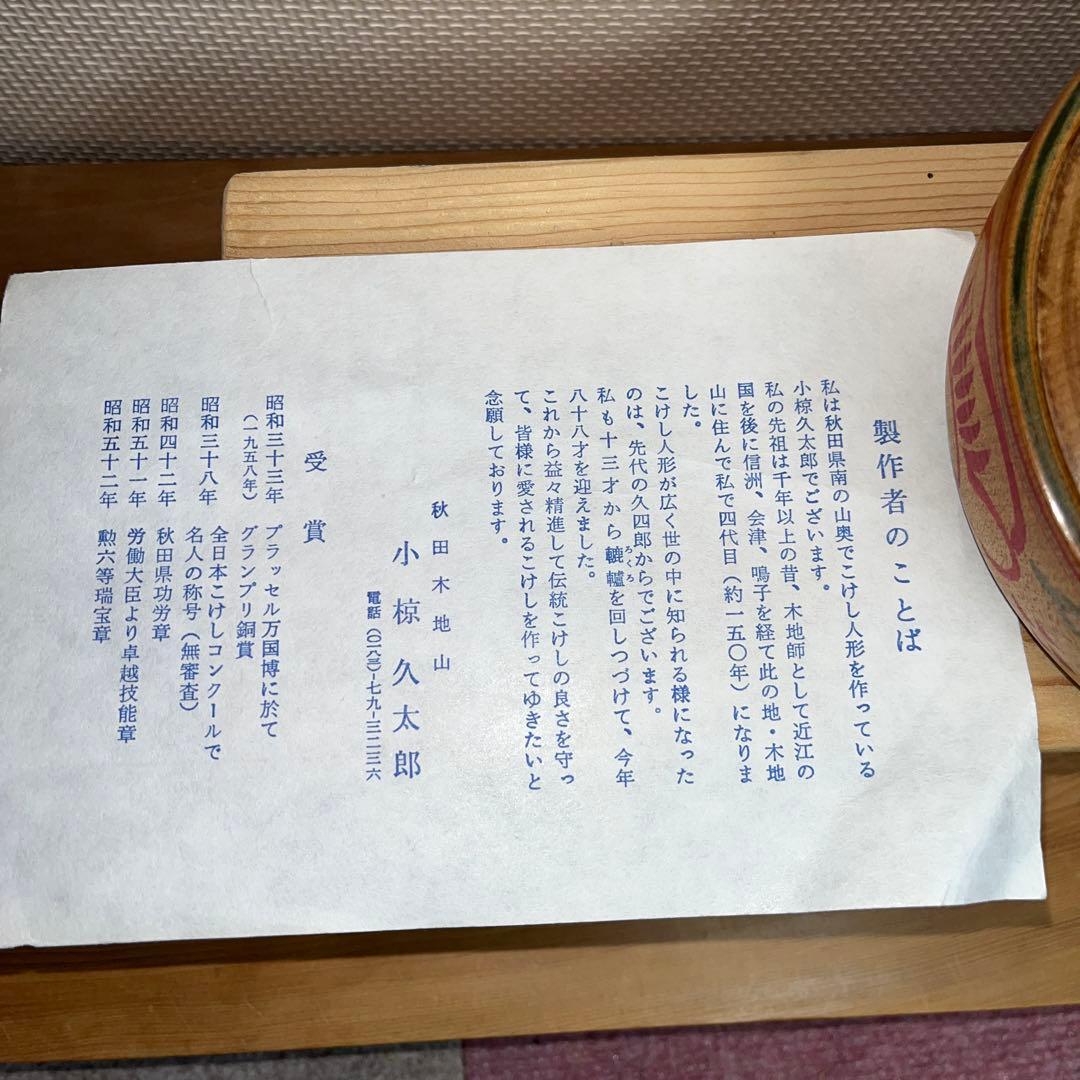 製作者のことば
私は秋田県南の山奥でこけし人形を作っている
小椋久太郎でございます。
私の先祖は千年以上の昔、木地師として近江の
国を後に信洲、会津、鳴子を経て此の地・木地
山に住んで私で四代目(約一五〇年)になりま
した。
こけし人形が広く世の中に知られる様になった
のは、先代の久四郎からでございます。
私も十三才から轆轤を回しつづけて、今年
ろくろ
八十八才を迎えました。
これから益々精進して伝統こけしの良さを守っ
て、皆様に愛されるこけしを作ってゆきたいと
念願しております。
秋田木地山
小椋久太郎
電話(〇一八三)-七九-三二三六
受賞
昭和三十三年 ブラッセル万国博に於て
(一九五八年) グランプリ銅賞
昭和三十八年 全日本こけしコンクールで
名人の称号(無審査)
昭和四十二年 秋田県功労章
昭和五十一年 労働大臣より卓越技能章
昭和五十二年 勲六等瑞宝章